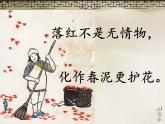 落红不是无情物，
化作春泥更护花。